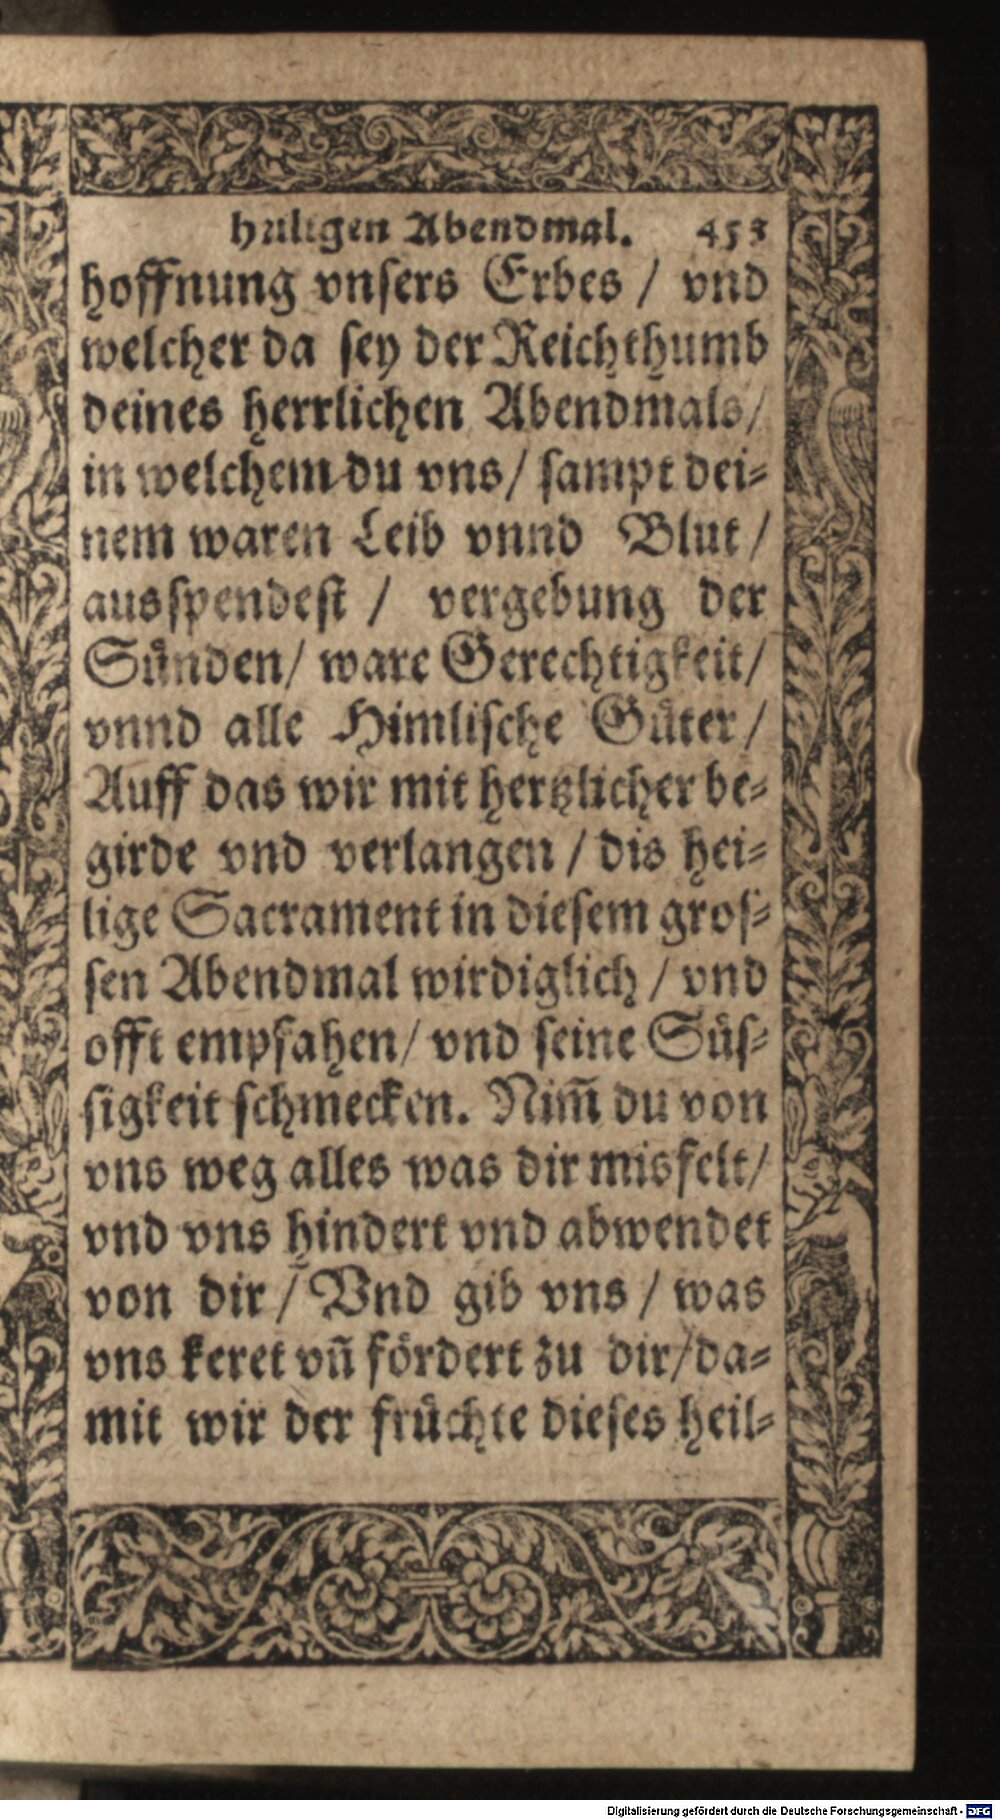 heiligen Abendmal. 453
hoffnung vnsers Erbes / vnd
welcher da sey der Reichthumb
deines herrlichen Abendmals /
in welchem du vns / sampt dei=
nem waren Leib vnnd Blut /
ausspendest / vergebung der
Sünden / ware Gerechtigkeit /
vnnd alle Himlische Güter /
Auff das wir mit hertzlicher be=
girde vnd verlangen / dis hei=
lige Sacrament in diesem gros=
sen Abendmal wirdiglich / vnd
offt empfahen / vnd seine Süs=
sigkeit schmecken. Nim̄ du von
vns weg alles was dir misfelt /
vnd vns hindert vnd abwendet
von dir / Vnd gib vns / was
vns keret vn̄ fördert zu dir / da=
mit wir der früchte dieses heil=
Digitalisierung gefördert durch die Deutsche Forschungsgemeinschaft - DFG